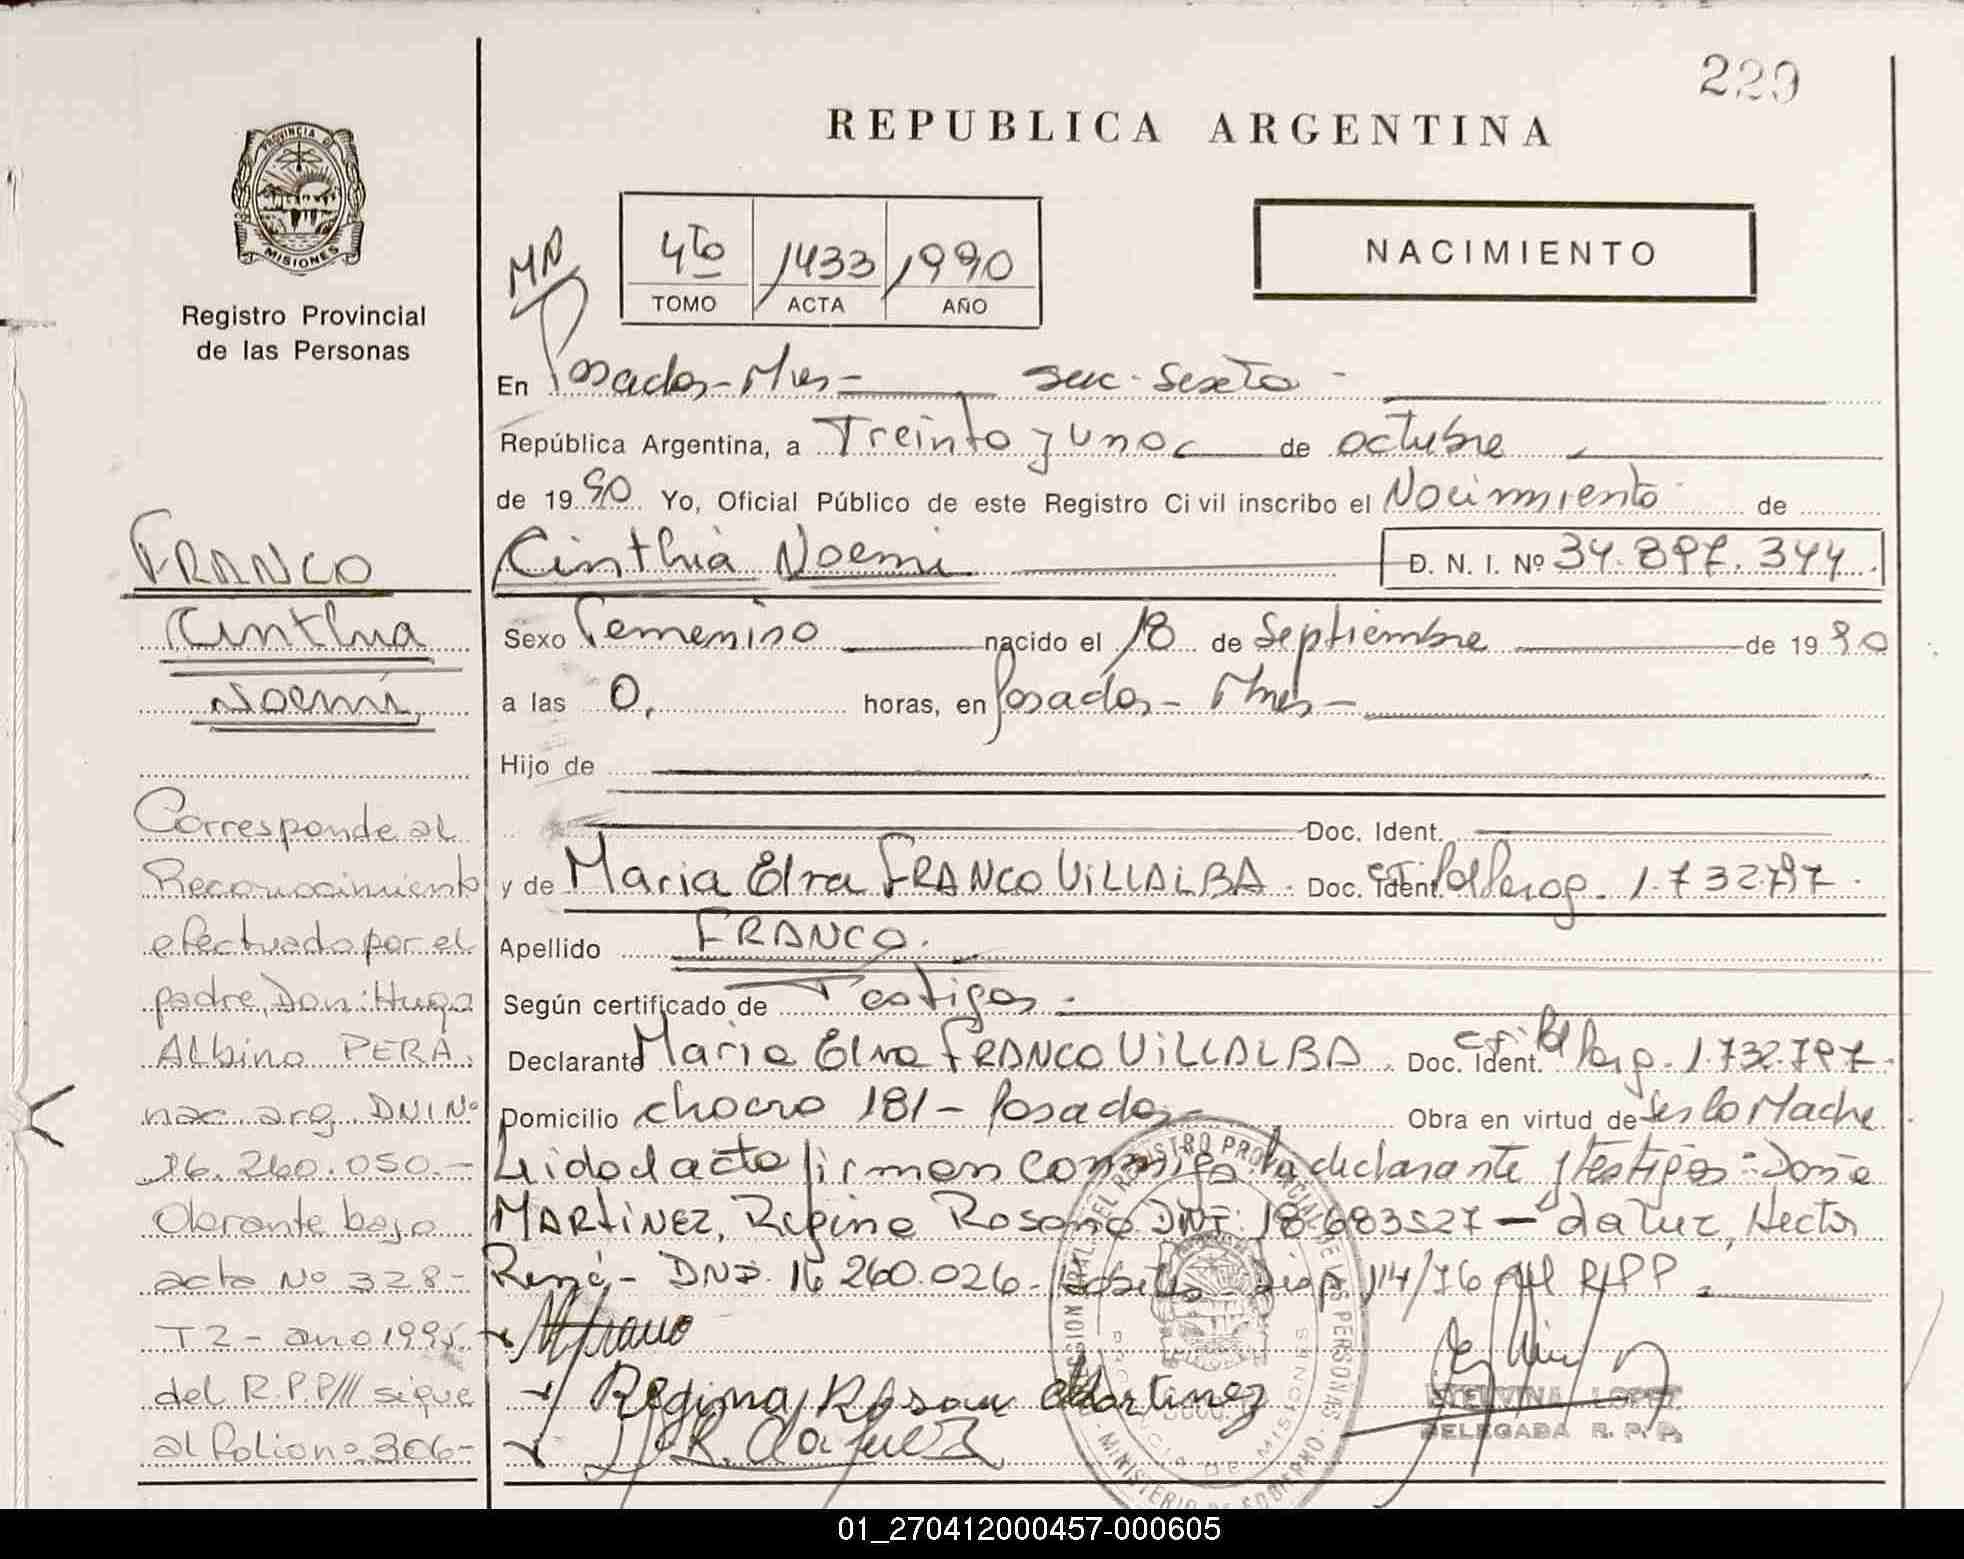 229
REPUBLICA ARGENTINA
PROVINCIA DE
MISIONES
Registro Provincial
de las Personas
4to 1433 1990
TOMO ACTA AÑO
NACIMIENTO
En Posadas-Mnes- sec. Sexta -
República Argentina, a Treinta y uno de octubre
de 1990 Yo, Oficial Público de este Registro Civil inscribo el Nacimiento de
Cinthia Noemi D. N. I. Nº 34.897.344
Sexo Femenino nacido el 18 de Septiembre de 1990
a las 0, horas, en Posadas- Mnes-
Hijo de
Doc. Ident.
y de Maria Elva FRANCO VILLALBA. Doc. Ident. 1.732.797.
Apellido FRANCO.
Según certificado de Testigos -
Declarante Maria Elva FRANCO VILLALBA. Doc. Ident. 1.732.797.
Domicilio chaco 181 - Posadas- Obra en virtud de Ser la Madre
Leido el acta firman conmigo la declarante y testigos: Doña
MARTINEZ, Regina Rosana DNI: 18.683527 - da Luz, Hector
René - DNI. 16 260.026 - Disp 114/76 del RPP.
Regina Rosana Martinez
H R. da Luz
ETELVINA LOPEZ
DELEGADA R. P. P.
FRANCO
Cinthia
Noemi,
Corresponde al
Reconocimiento
efectuado por el
padre, Don: Hugo
Albino PERA.
nac. arg. DNI Nº
16.260.050.-
Obrante bajo
acta Nº 328-
T 2 - año 1995
del R.P.P/// sigue
al folio nº 306-
01_270412000457-000605